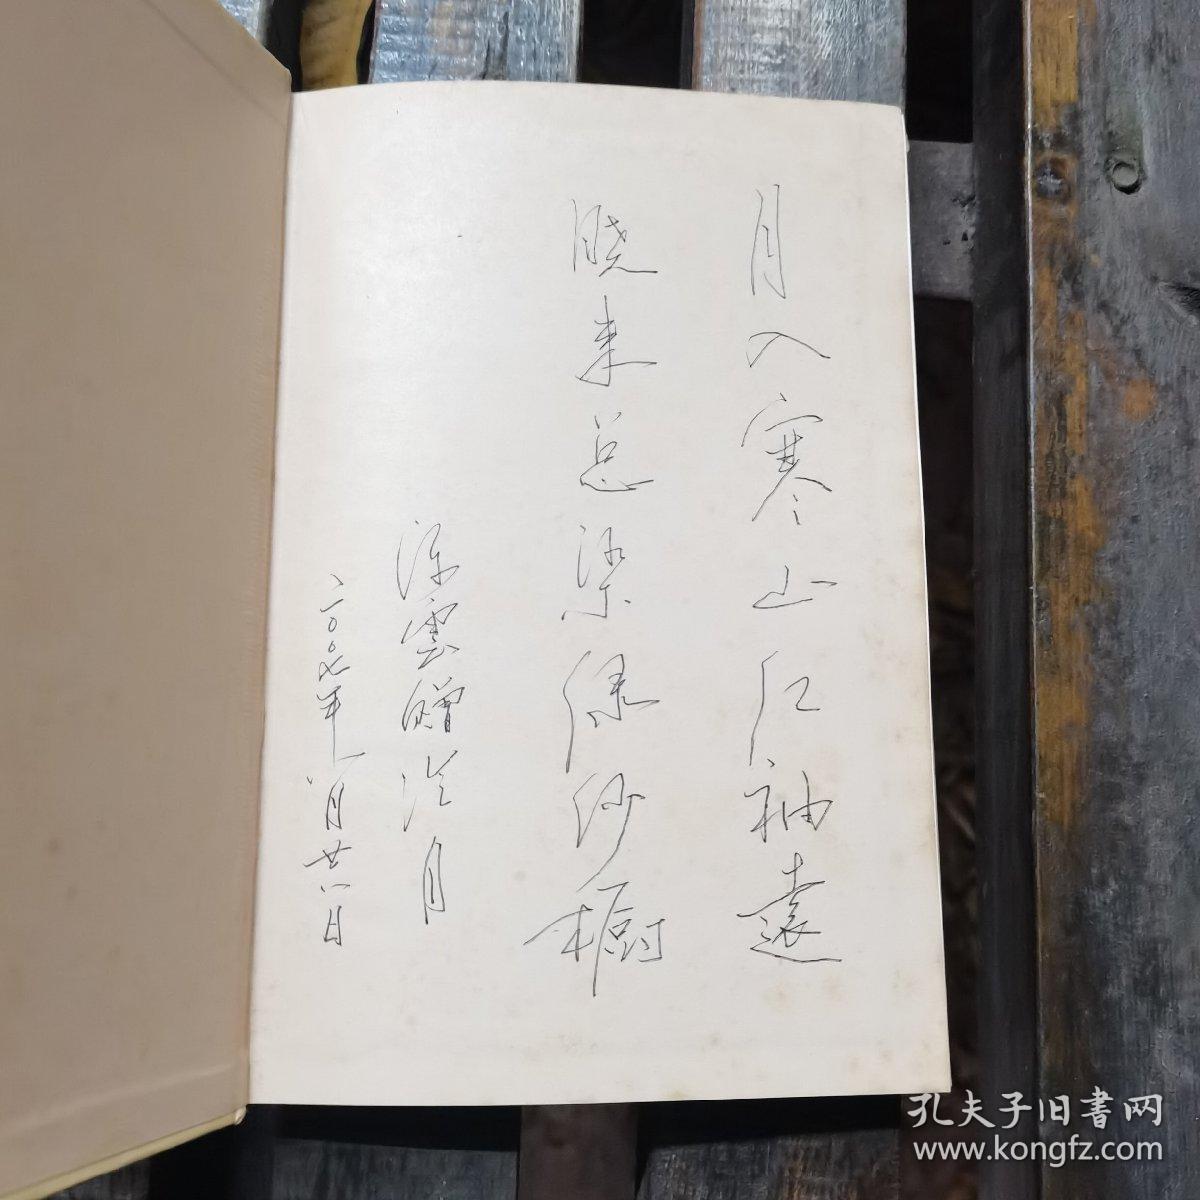 月入寒山红袖遠
晓来总染绿纱橱
雲贈冷月
二〇〇七年八月廿八日
孔夫子旧書网
www.kongfz.com